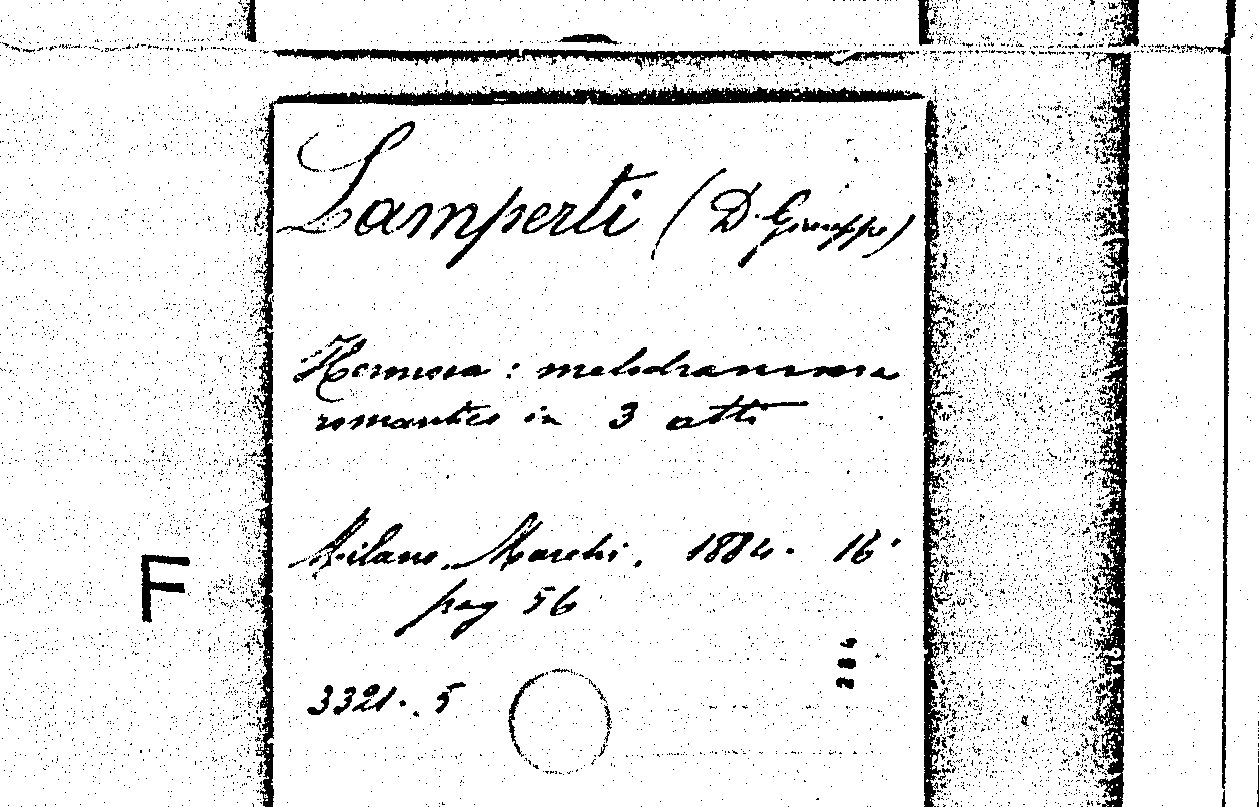 Lamperti (D. Giuseppe)
Hermosa : melodramma
romantico in 3 atti
Milano, Marchi, 1884. 16°
pag 56
F
284
3321. 5